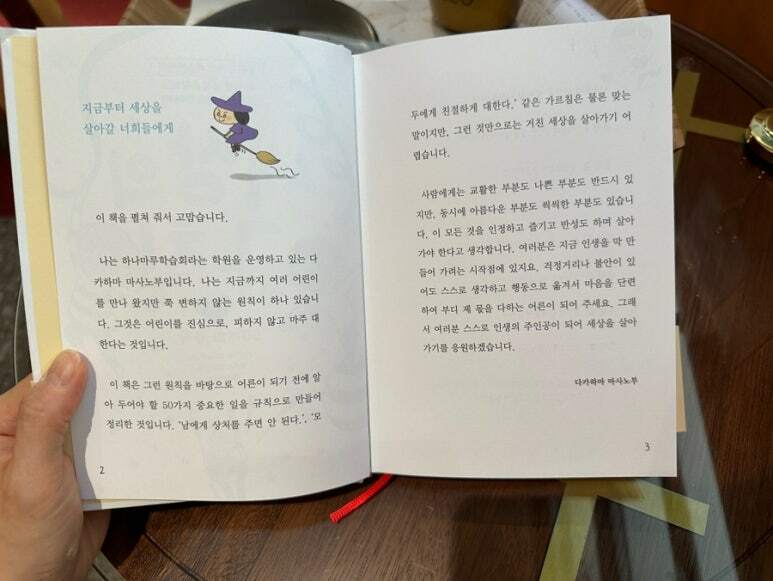 지금부터 세상을
살아갈 너희들에게
이 책을 펼쳐 줘서 고맙습니다.
나는 하나마루학습회라는 학원을 운영하고 있는 다
카하마 마사노부입니다. 나는 지금까지 여러 어린이
를 만나 왔지만 쭉 변하지 않는 원칙이 하나 있습니
다. 그것은 어린이를 진심으로, 피하지 않고 마주 대
한다는 것입니다.
이 책은 그런 원칙을 바탕으로 어른이 되기 전에 알
아 두어야 할 50가지 중요한 일을 규칙으로 만들어
정리한 것입니다. ‘남에게 상처를 주면 안 된다.’, ‘모
2
두에게 친절하게 대한다.’ 같은 가르침은 물론 맞는
말이지만, 그런 것만으로는 거친 세상을 살아가기 어
렵습니다.
사람에게는 교활한 부분도 나쁜 부분도 반드시 있
지만, 동시에 아름다운 부분도 씩씩한 부분도 있습니
다. 이 모든 것을 인정하고 즐기고 반성도 하며 살아
가야 한다고 생각합니다. 여러분은 지금 인생을 막 만
들어 가려는 시작점에 있지요. 걱정거리나 불안이 있
어도 스스로 생각하고 행동으로 옮겨서 마음을 단련
하여 부디 제 몫을 다하는 어른이 되어 주세요. 그래
서 여러분 스스로 인생의 주인공이 되어 세상을 살아
가기를 응원하겠습니다.
다카하마 마사노부
3